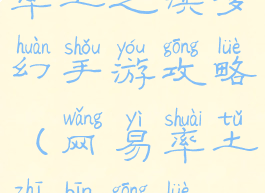 率土之滨梦
huàn shǒu yóu gōng lüè
幻手游攻略
wǎng yì shuài tǔ
(网易率土
zhī bīn gōng lüè